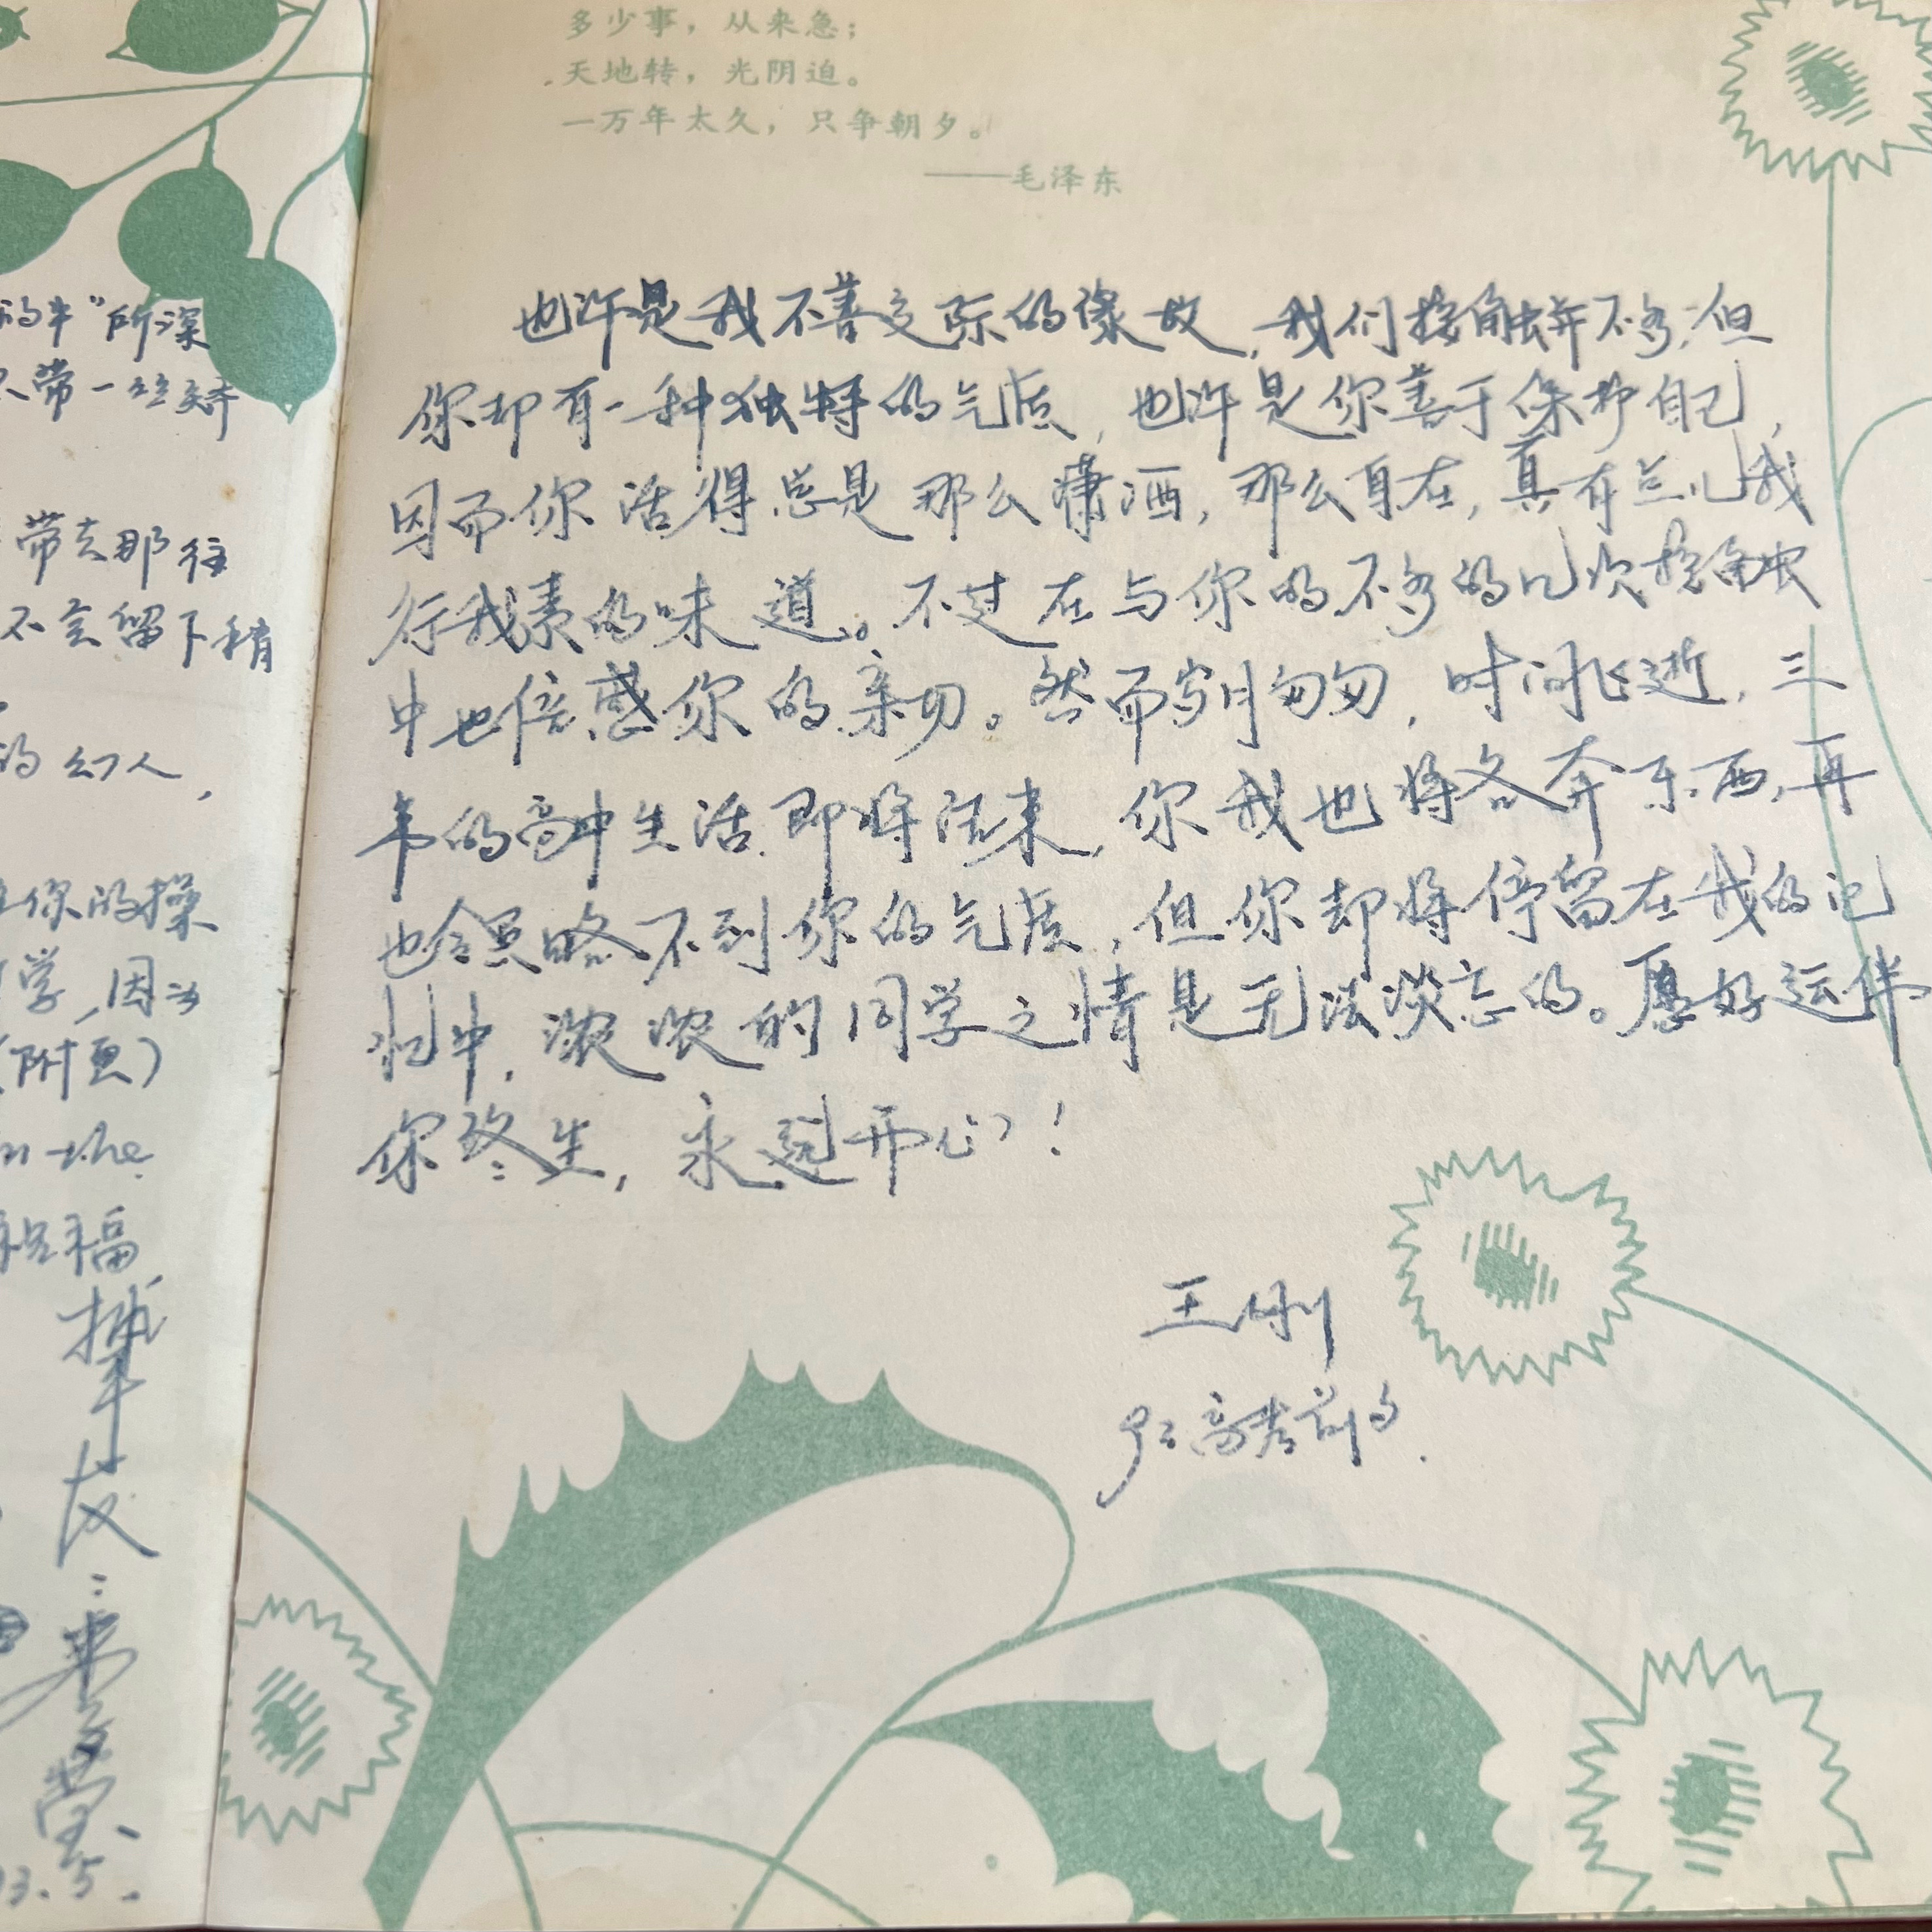 多少事，从来急；
天地转，光阴迫。
一万年太久，只争朝夕。
——毛泽东
也许是我不善交际的缘故，我们接触并不多，但
你却有一种独特的气质，也许是你善于保护自己，
因而你活得总是那么潇洒，那么自在，真有点儿我
行我素的味道。不过在与你的不多的几次接触
中也倍感你的亲切。然而岁月匆匆，时间飞逝，三
年的高中生活即将结束，你我也将各奔东西，再
也领略不到你的气质，但你却将停留在我的记
忆中，浓浓的同学之情是无法淡忘的。愿好运伴
你终生，永远开心！
王刚
93高考前夕.
的牛"所深
不带一丝娇
带去那往
不会留下稍
的幻人，
你的操
学，因为
(附页)
in the
祝福
挚友:
93.5.